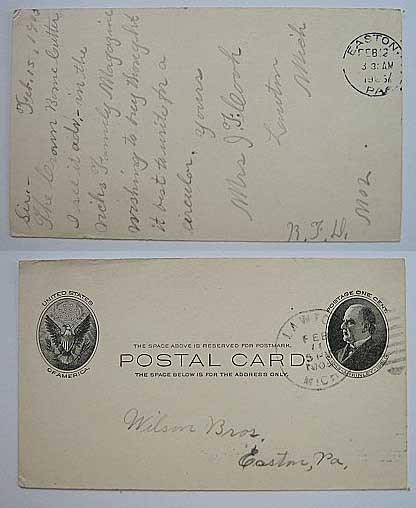 Feb. 15, 1903
Sirs-
The Crown Bone Cutter
I see it adv,- in the
Vicks Family Magazine
wishing to buy thought
it best to write for a
circular, Yours
Mrs J. F. Cook
Lawton
Mich
R. F. D. No 2.
EASTON.
FEB 12
3 30 AM
PA.
UNITED STATES
OF AMERICA.
THE SPACE ABOVE IS RESERVED FOR POSTMARK.
POSTAL CARD
THE SPACE BELOW IS FOR THE ADDRESS ONLY.
POSTAGE ONE CENT.
LAWTON
FEB
11
MICH
Wilson Bros.
Easton, Pa,